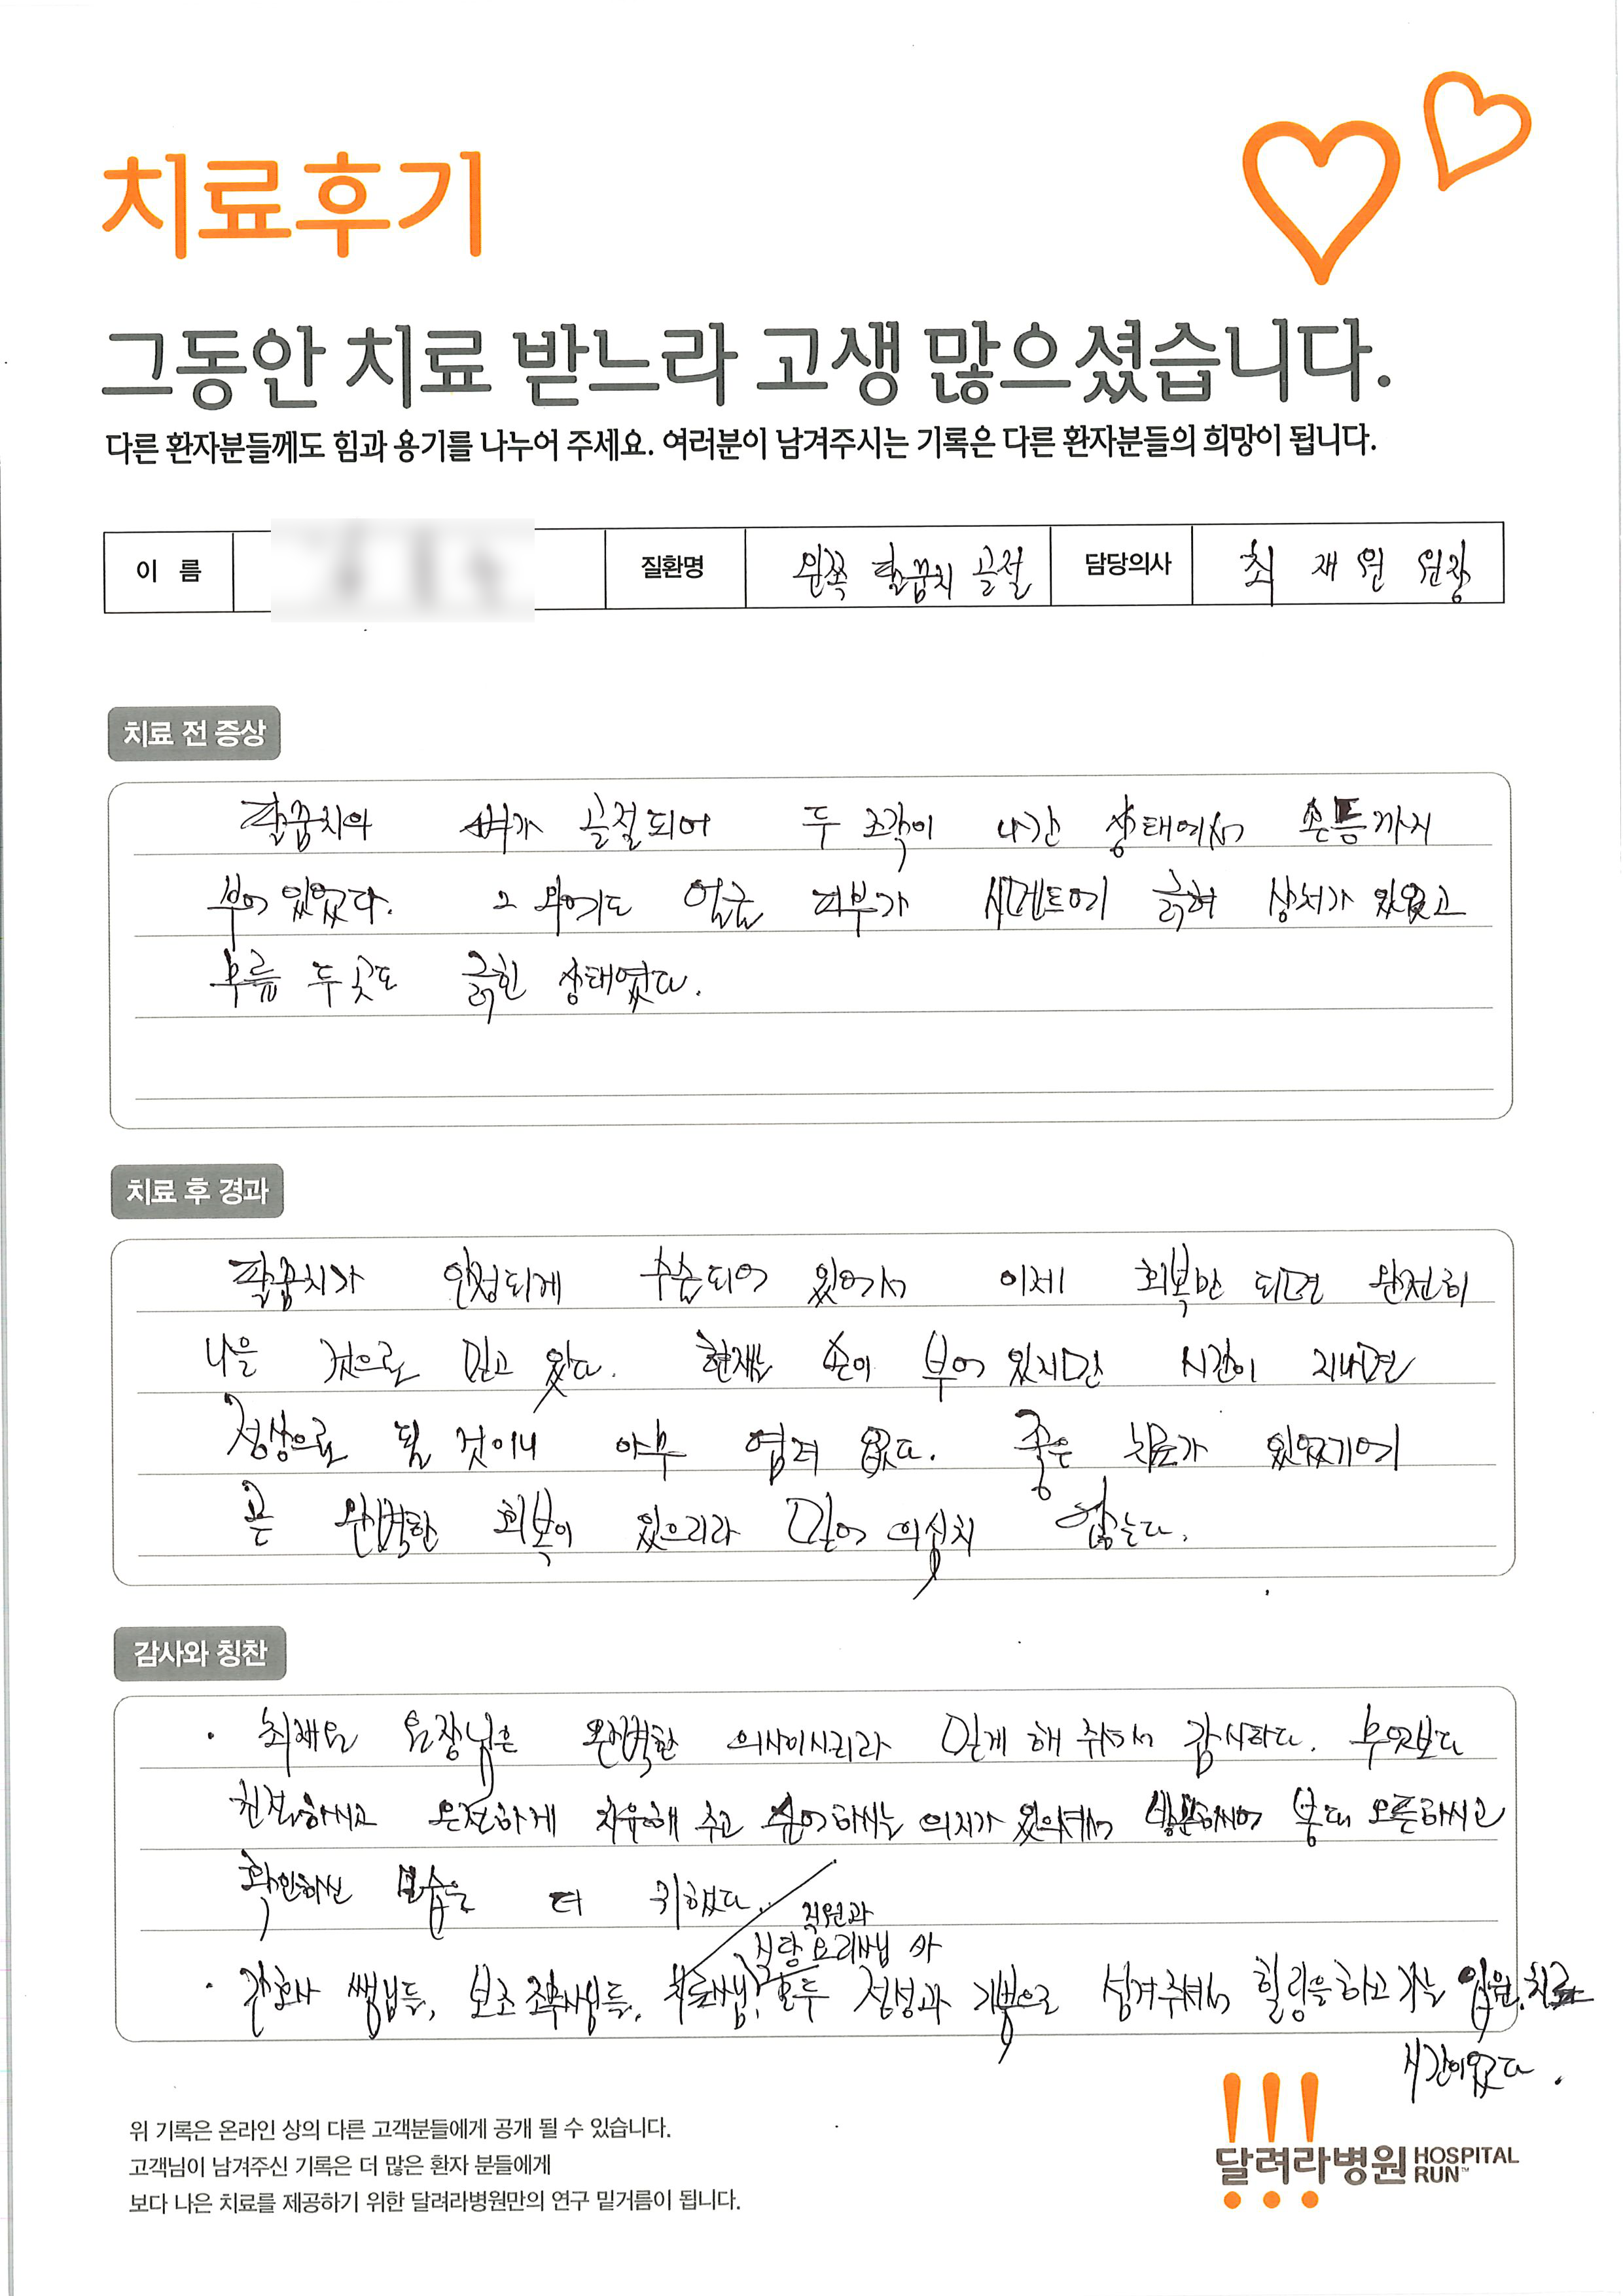 치료후기
그동안 치료 받느라 고생 많으셨습니다.
다른 환자분들께도 힘과 용기를 나누어 주세요. 여러분이 남겨주시는 기록은 다른 환자분들의 희망이 됩니다.
이 름 질환명 왼쪽 팔꿈치 골절 담당의사 최 재 원 원장
치료 전 증상
팔꿈치의 뼈가 골절되어 두 조각이 나간 상태에서 손등까지
부어 있었다. 그 외에도 얼굴 피부가 시멘트에 긁혀 상처가 있었고
무릎 두 곳도 긁힌 상태였다.
치료 후 경과
팔꿈치가 안정되게 수습되어 있어서 이제 회복만 되면 완전히
나을 것으로 믿고 왔다. 현재는 손이 부어 있지만 시간이 지나면
정상으로 될 것이니 아무 염려 없다. 좋은 치료가 있었기에
곧 완벽한 회복이 있으리라 믿어 의심치 않는다.
감사와 칭찬
· 최재원 원장님은 완벽한 의사이시리라 믿게 해 주셔서 감사하다. 무엇보다
친절하시고 온전하게 치유해 주고 싶어하시는 의지가 있으셔서 붕대 오픈하시고
확인하신 모습을 더 귀했다.
직원과
식당 요리사님 과
· 간호사 쌤님들, 보조 조무사님들, 치료사님, 모두 정성과 기쁨으로 섬겨주셔서 힐링을 하고 가는 입원, 치료
시간이었다.
위 기록은 온라인 상의 다른 고객분들에게 공개 될 수 있습니다.
고객님이 남겨주신 기록은 더 많은 환자 분들에게
보다 나은 치료를 제공하기 위한 달려라병원만의 연구 밑거름이 됩니다.
달려라병원 HOSPITAL RUN™